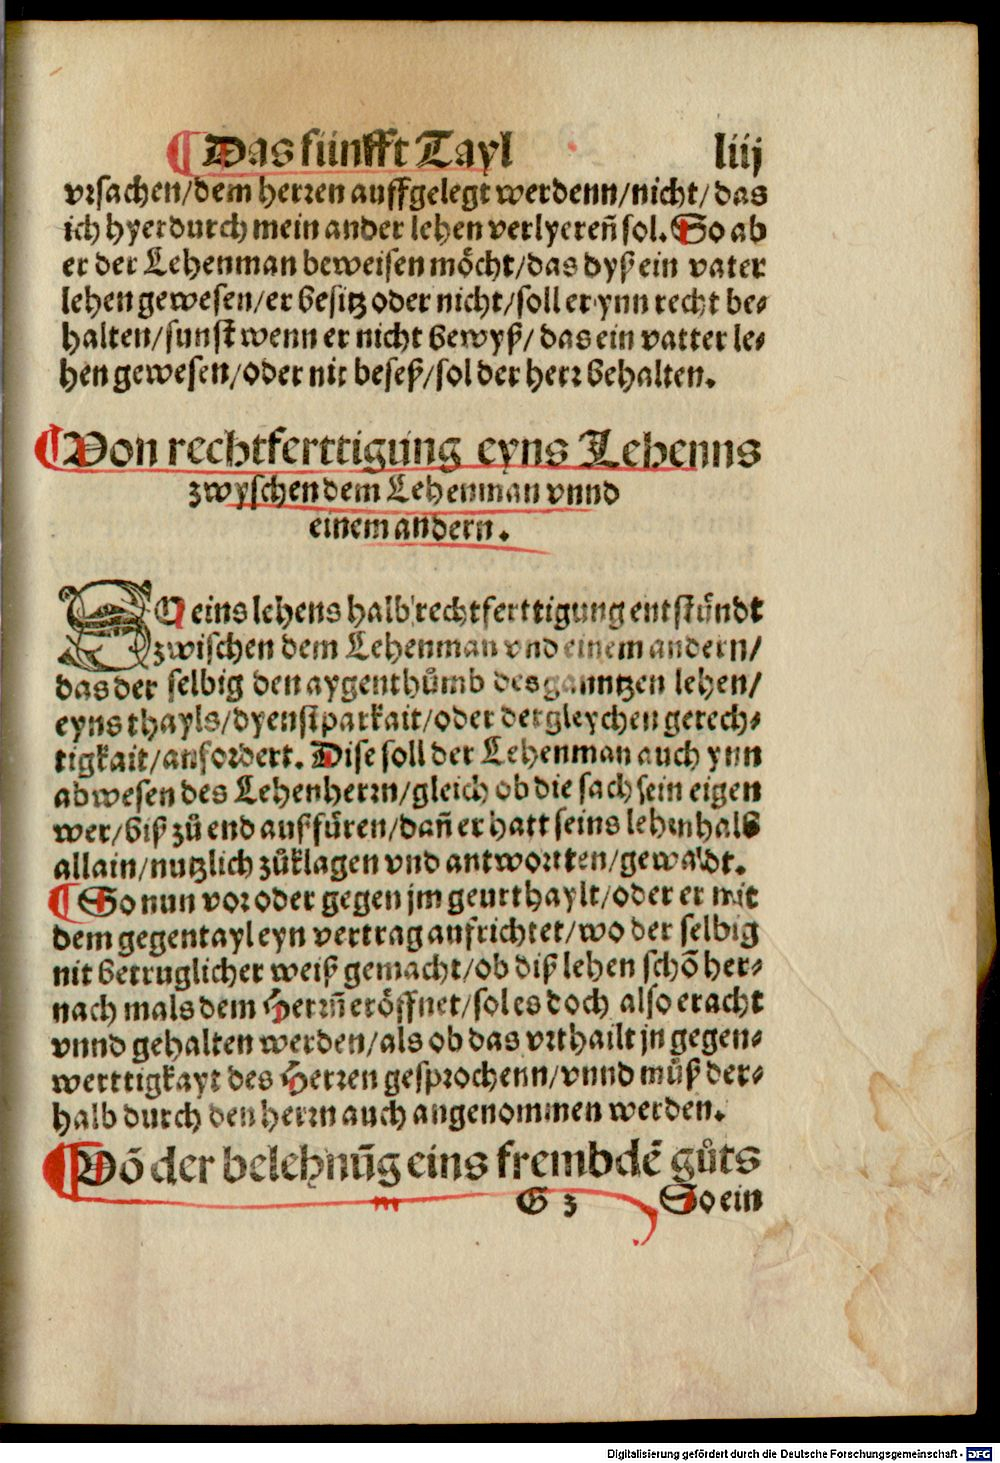 ¶Das fünfft Tayl liij
vrsachen/dem herren auffgelegt werdenn/nicht/das
ich hyerdurch mein ander lehen verlyereñ sol. So ab
er der Lehenman beweisen möcht/das dyß ein vater
lehen gewesen/er besitz oder nicht/soll er ynn recht be⸗
halten/sunst wenn er nicht bewyß/das ein vatter le⸗
hen gewesen/oder nit beseß/sol der herr behalten.
¶Von rechtferttigung eyns Lehenns
zwyschen dem Lehenman vnnd
einem andern.
SO eins lehens halb rechtferttigung entstündt
zwischen dem Lehenman vnd einem andern/
das der selbig den aygenthůmb des ganntzen lehen/
eyns thayls/dyenstparkait/oder dergleychen gerech⸗
tigkait/anfordert. Dise soll der Lehenman auch ynn
abwesen des Lehenherrn/gleich ob die sach sein eigen
wer/biß zů end auffüren/dañ er hatt seins lehenhalb
allain/nutzlich zůklagen vnd antwortten/gewaldt.
¶So nun vor oder gegen jm geurthaylt/oder er mit
dem gegentayl eyn vertrag aufrichtet/wo der selbig
nit betruglicher weiß gemacht/ob diß lehen schõ her⸗
nach mals dem Herrñ eröffnet/sol es doch also eracht
vnnd gehalten werden/als ob das vrthailt jn gegen⸗
werttigkayt des Herren gesprochenn/vnnd můß der⸗
halb durch den herrn auch angenommen werden.
¶Võ der belehnũg eins frembdẽ gůts
G 3 So ein
Digitalisierung gefördert durch die Deutsche Forschungsgemeinschaft - DFG